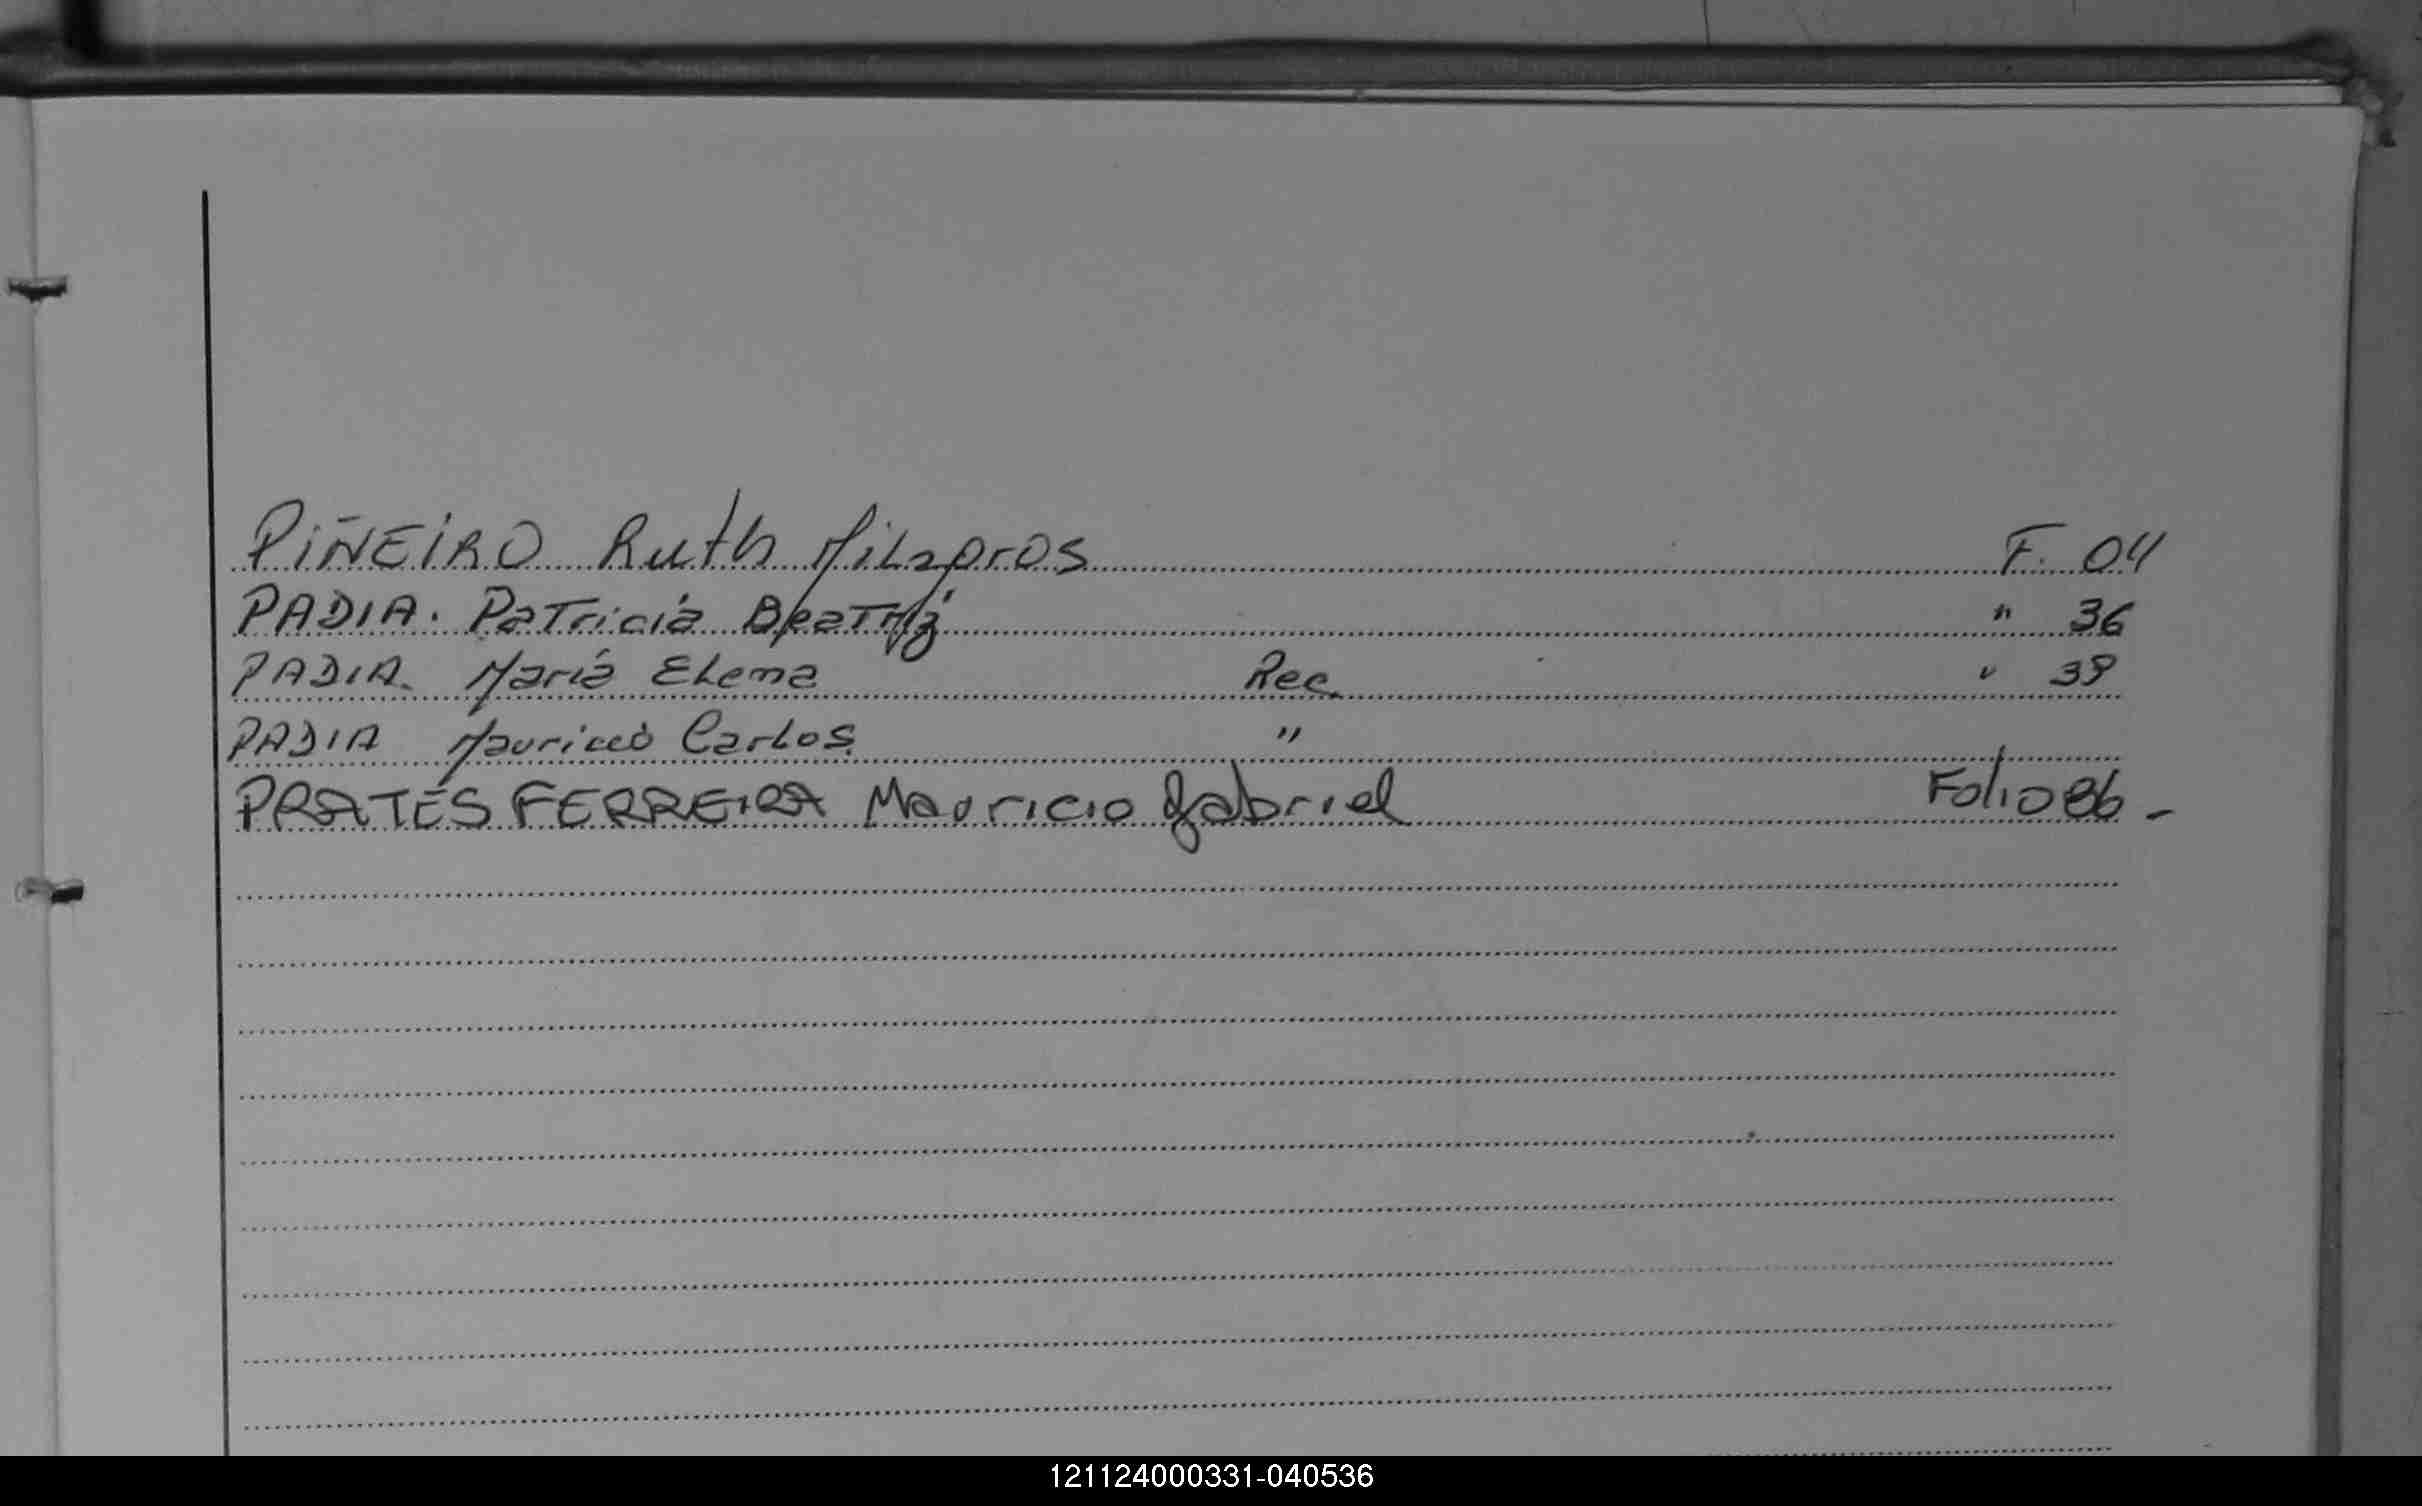 PIÑEIRO Ruth Milagros F. 04
PADIA. Patricia Beatriz " 36
PADIA. María Elena Rec. " 39
PADIA Mauricio Carlos. "
PRATES FERREIRA Mauricio Gabriel Folio 86-
121124000331-040536